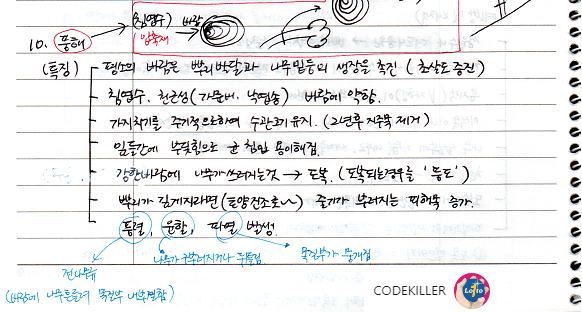 (침엽수) 바람
압축재
10. 풍해
(특징) 평소의 바람은 뿌리 발달과 나무 밑둥의 생장을 촉진 (초살도 증진)
침엽수, 천근성 (가문비, 낙엽송) 바람에 약함.
가지치기를 주기적으로하여 수관크기 유지. (2년후 지주목 제거)
밑둥간에 부딪힘으로 균 침입 용이해짐.
강한바람에 나무가 쓰러지는것 → 도복. (도복되는경우를 '풍도')
뿌리가 길게자라면 (토양건조로) 줄기가 부러지는 피해목 증가.
통렬, 윤할, 파열 발생.
나무가 구부러지거나
목질부가
(바람에 나무흔들려 목질부 내부결함)
CODEKILLER
Lotto